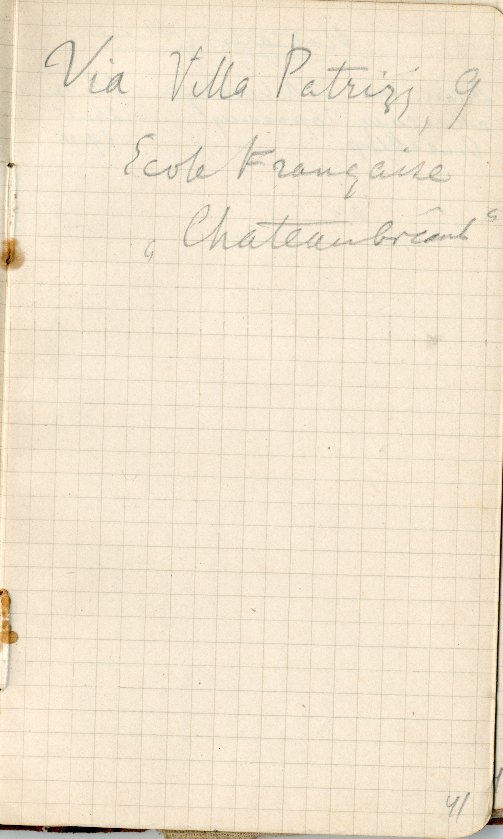 Via Villa Patrizj, 9
Ecole Française
„Chateaubriand“
41